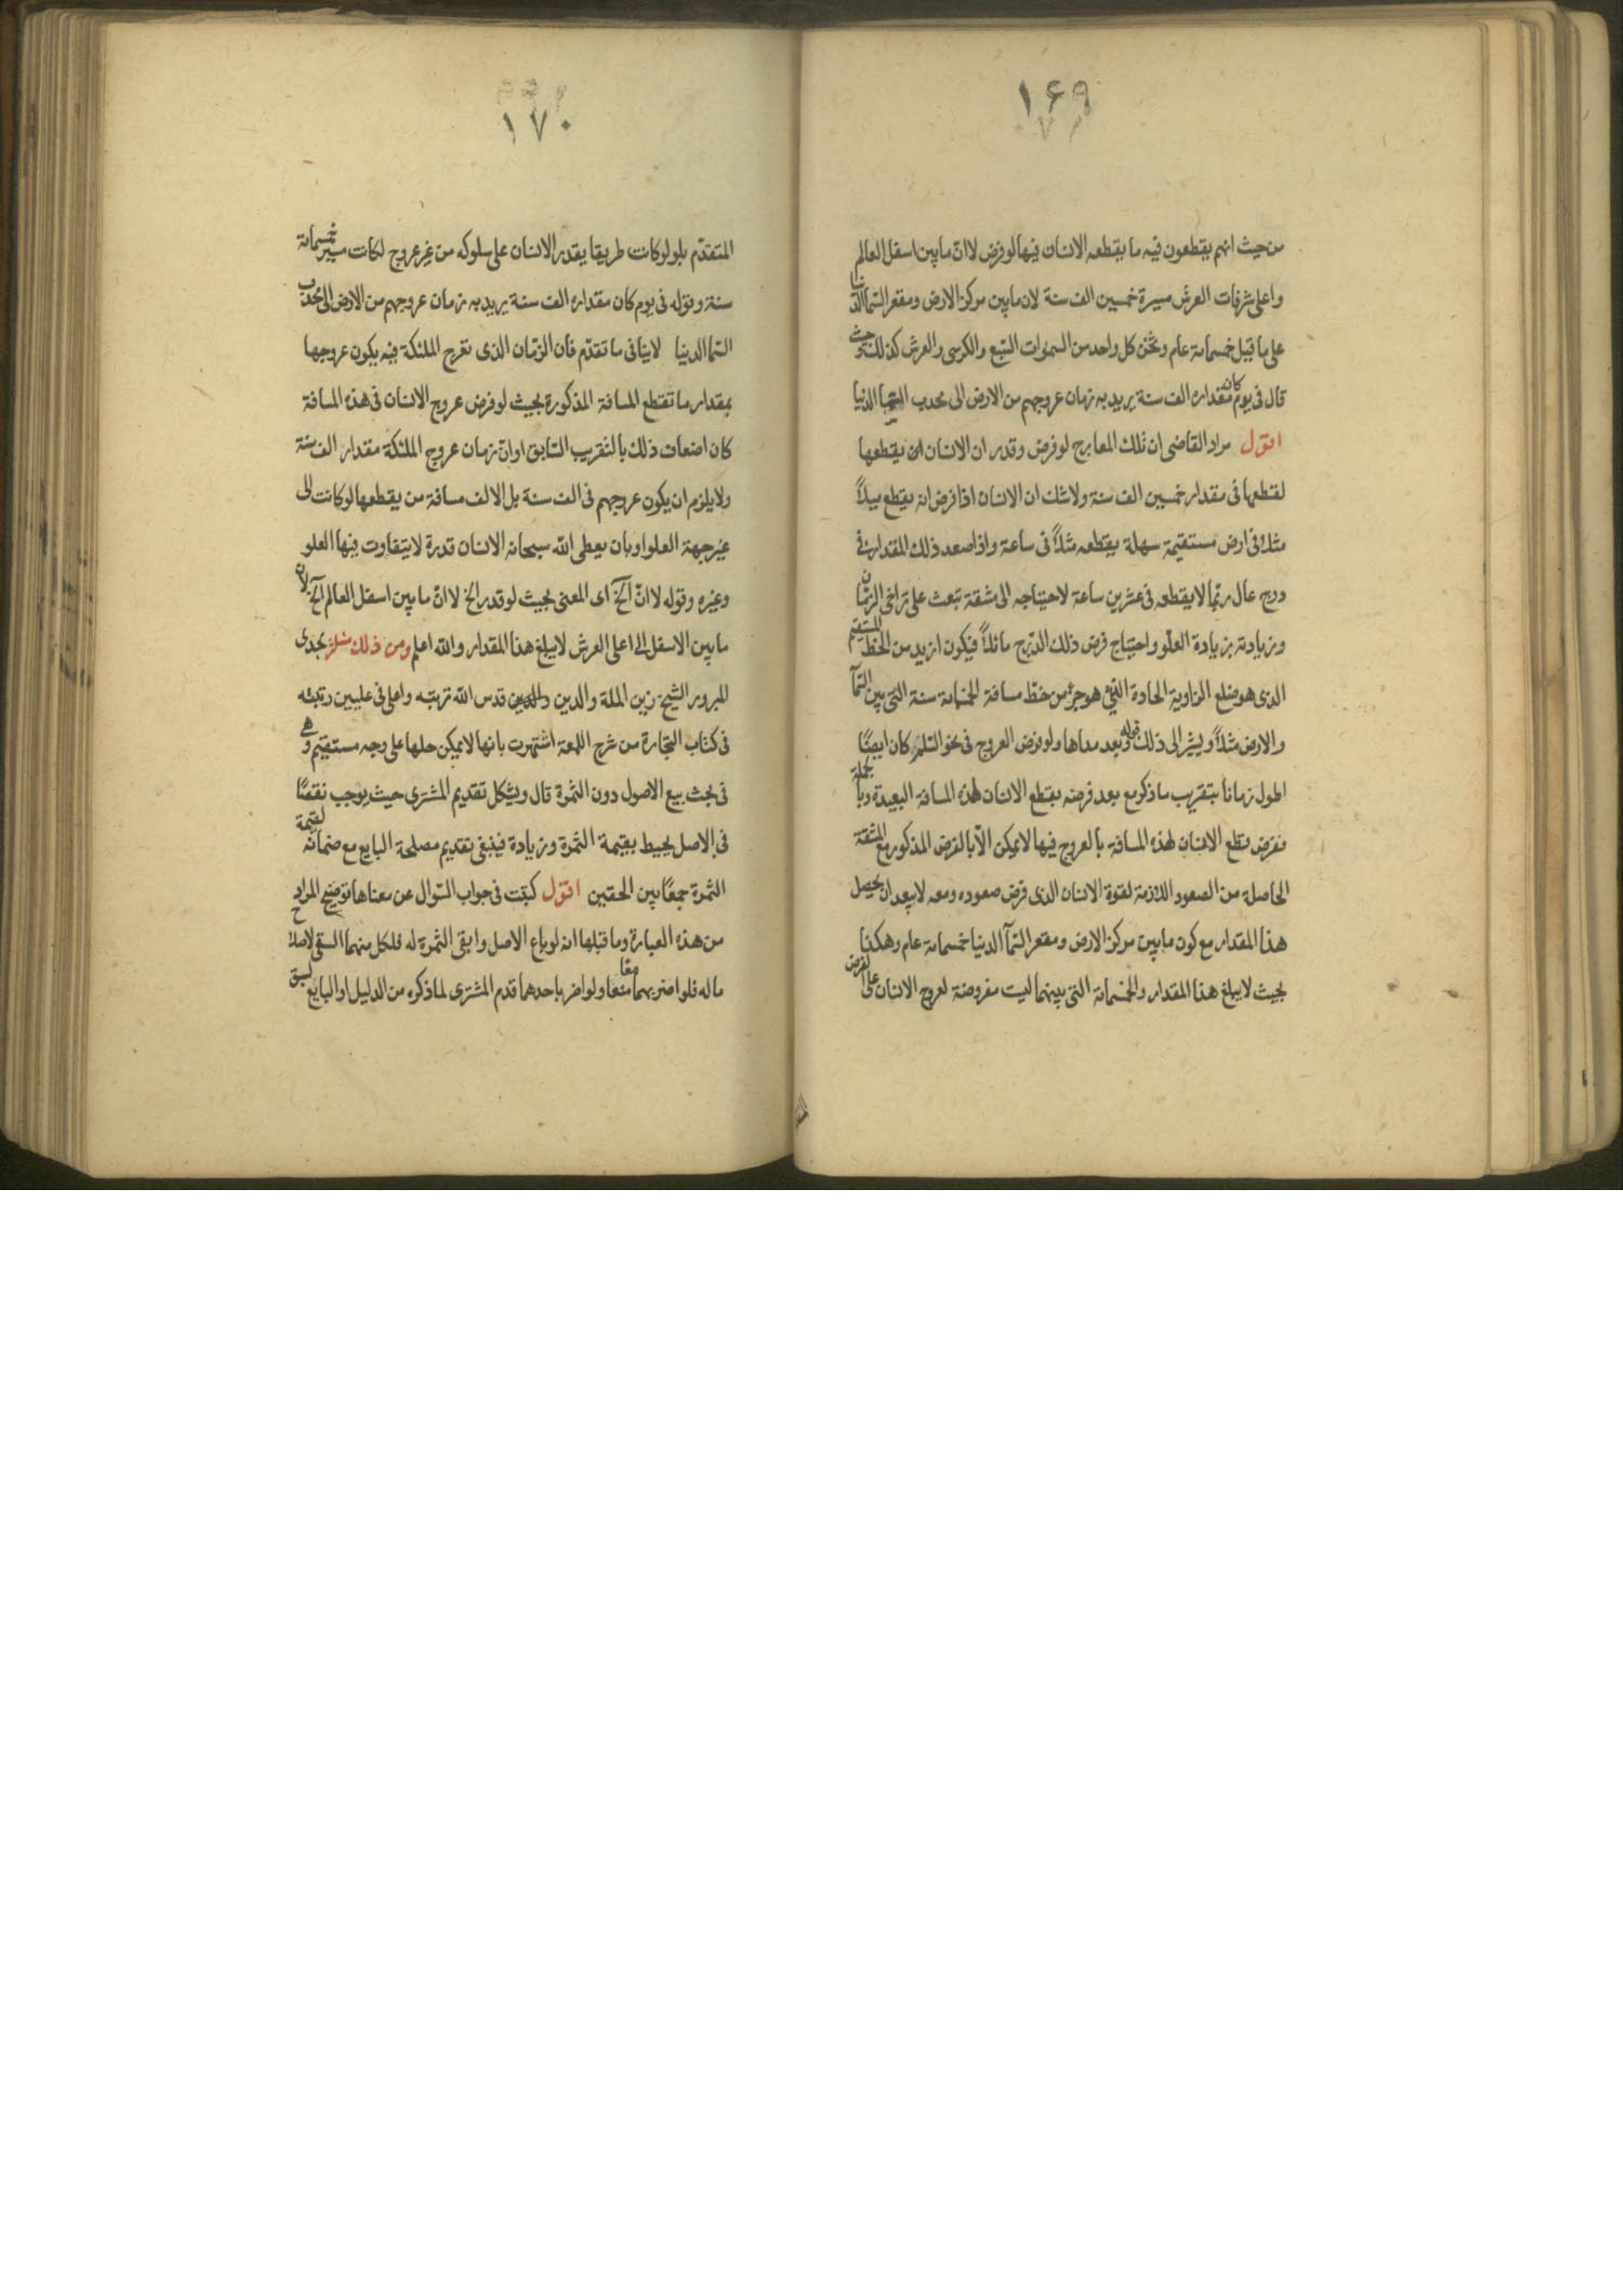 ١۶٩
من حيث انهم يقطعون فيه ما يقطعه الانسان فيها لو فرض لا انّ ما بين اسفل العالم
واعلى شرفات العرش مسيرة خمسين الف سنة لان ما بين مركز الارض ومقعر السماء الدنيا
على ما قيل خمسمائة عام وثخن كل واحد من السموات السبع والكرسى والعرش كذلك وحيث
قال فى يوم كان مقداره الف سنة يريد به زمان عروجهم من الارض الى محدب السماء الدنيا
اقول مراد القاضى ان تلك المعارج لو فرض وقدر ان الانسان يقطعها
لقطعها فى مقدار خمسين الف سنة ولا شك ان الانسان اذا فرض انه يقطع ميلاً
مثلا فى ارض مستقيمة سهلة يقطعه مثلاً فى ساعة واذا صعد ذلك المقدار فى
درج عال ربّما لا يقطعه فى عشرين ساعة لاحتياجه الى مشقة تبعث على تراخى الزمان
وزيادته بزيادة العلّو واحتياج فرض ذلك الدّرج مائلاً فيكون ازيد من الخط المستقيم
الذى هو ضلع الزاوية الحادة التى هو جزء من خط مسافة الخمسمائة سنة التى بين السمآ
والارض مثلاً ويشير الى ذلك قوله وبعد مداها ولو فرض العروج فى نحو السلم كان ايضًا
اطول زمانا بتقريب ما ذكر مع بعد فرضه بقطع الانسان لهذه المسافة البعيدة وبالجملة
ففرض قطع الانسان لهذه المسافة بالعروج فيها لا يمكن الّا بالفرض المذكور مع المشقة
الحاصلة من الصعود اللازمة لقوة الانسان الذى فرض صعوده ومعه لا يبعد ان يحصل
هذا المقدار مع كون ما بين مركز الارض ومقعر السمآ الدنيا خمسمائة عام وهكذا
بحيث لا يبلغ هذا المقدار والخمسمائة التى بينهما ليست مفروضة لعروج الانسان على الفرض
١٧٠
المتقدّم بل لو كانت طريقا يقدر الانسان على سلوكه من غير عروج لكانت مسير خمسمائة
سنة وقوله فى يوم كان مقداره الف سنة يريد به زمان عروجهم من الارض الى محدب
السماء الدنيا لا ينافى ما تقدّم فان الزمان الذى تعرج الملئكة فيه يكون عروجها
بمقدار ما تقتطع المسافة المذكورة بحيث لو فرض عروج الانسان فى هذه المسافة
كان اضعاف ذلك بالتقريب السابق او انّ زمان عروج الملئكة مقدار الف سنة
ولا يلزم ان يكون عروجهم فى الف سنة بل الالف مسافة من يقطعها لو كانت الى
غير جهة العلو او بان يعطى الله سبحانه الانسان قدرة لا يتفاوت فيها العلو
وغيره وقوله لا انّ الخ اى المعنى بحيث لو قدر الخ لا انّ ما بين اسفل العالم الخ لان
ما بين الاسفل الى اعلى العرش لا يبلغ هذا المقدار والله اعلم ومن ذلك مسئلة لجدى
المبرور الشيخ زين الملة والدين قدس الله تربته واعلى فى عليين رتبته
فى كتاب التجارة من شرح اللمعة اشتهرت بانها لا يمكن حلها على وجه مستقيم وهى
فى بحث بيع الاصول دون الثمرة قال ويشكل تقديم المشترى حيث يوجب نقصًا
فى الاصل يحيط بقيمة الثمرة وزيادة فينبغى تقديم مصلحة البايع مع ضمانه لقيمة
الثمرة جمعًا بين الحقين اقول كتبت فى جواب السوال عن معناها توضيح المراد
من هذه العبارة وما قبلها انه لو باع الاصل وابقى الثمرة له فلكل منهما السقى لاصلاح
ماله فلو اضر بهما معًا منعا ولو اضر باحدهما قدم المشترى لما ذكره من الدليل او البايع لسبق